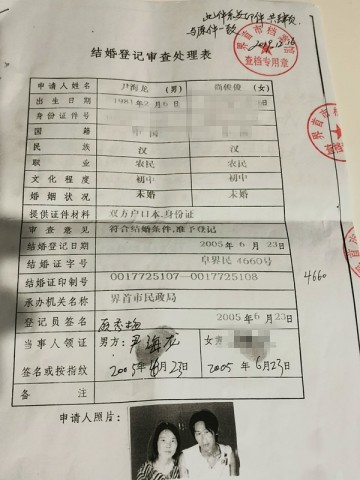 此件系复印件 共肆页
与原件一致
2019.12.16
界首市档案馆
查档专用章
结婚登记审查处理表
申请人姓名 尹海龙 (男) 尚俊俊 (女)
出生日期 1981年2月6日
身份证件号
国籍 中国 中国
民族 汉 汉
职业 农民 农民
文化程度 初中 初中
婚姻状况 未婚 未婚
提供证件材料 双方户口本、身份证
审查意见 符合结婚条件,准予登记
结婚登记日期 2005年6月23日
结婚证字号 阜界民 4660号
结婚证印制号 0017725107---0017725108
4660
承办机关名称 界首市民政局
登记员签名 2005年6月23日
当事人领证 男方:尹海龙 女方
签名或按指纹 2005年6月23日 2005年6月23日
备注
申请人照片: